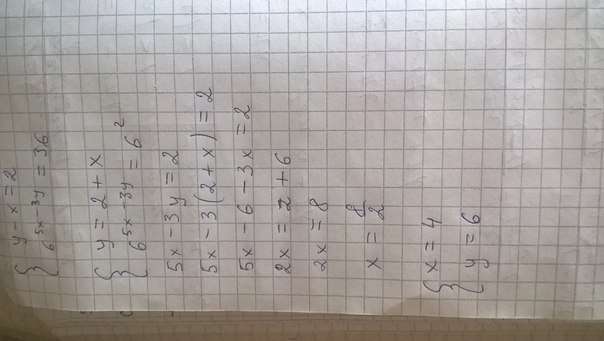 { y - x = 2
6^{5x-3y} = 36
{ y = 2 + x
6^{5x-3y} = 6^2
5x - 3y = 2
5x - 3(2 + x) = 2
5x - 6 - 3x = 2
2x = 2 + 6
2x = 8
x = 8/2
{ x = 4
y = 6